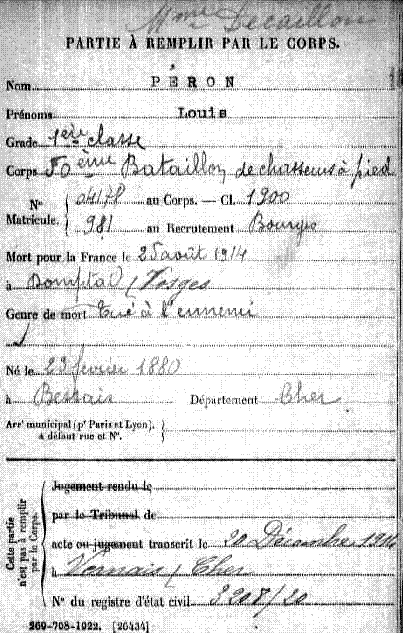 Mme Decaillon
PARTIE À REMPLIR PAR LE CORPS.
Nom PÉRON
Prénoms Louis
Grade 1ère classe
Corps 50ème Bataillon de chasseurs à pied
N° Matricule. { 04178 au Corps. — Cl. 1900
981 au Recrutement Bourges
Mort pour la France le 25 août 1914
à Domptail (Vosges
Genre de mort Tué à l'ennemi
Né le 22 février 1880
à Bessais Département Cher
Arrt municipal (pr Paris et Lyon),
à défaut rue et N°.
Cette partie n'est pas à remplir par le Corps.
Jugement rendu le
par le Tribunal de
acte ou jugement transcrit le 20 Décembre 1914
à Vornais / Cher
N° du registre d'état civil 3208/20
269-708-1922. [26434]